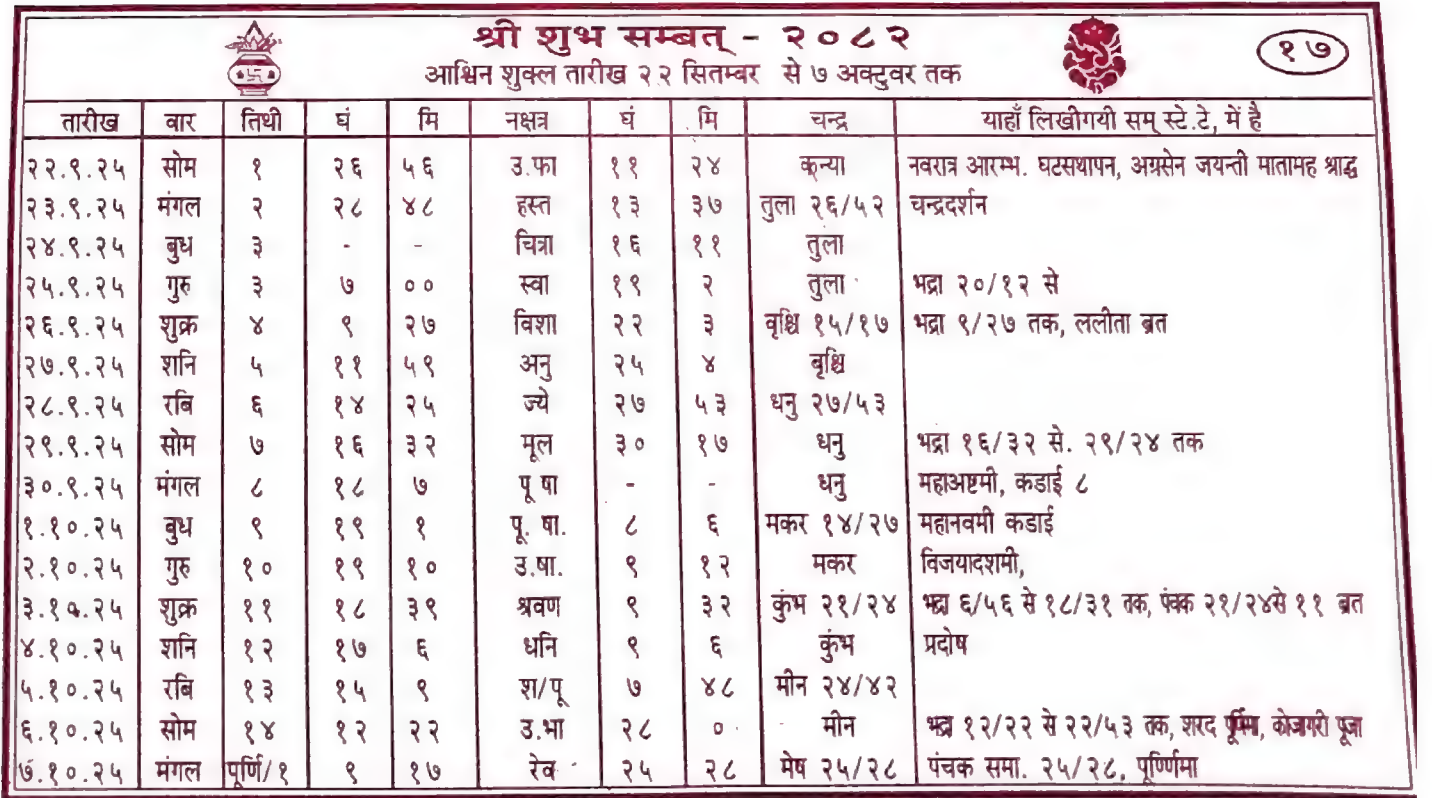 श्री शुभ सम्बत् - २०८२
१७
आश्विन शुक्ल तारीख २२ सितम्बर से ७ अक्टुवर तक
तारीख वार तिथी घं मि नक्षत्र घं मि चन्द्र याहाँ लिखीगयी सम् स्टे.टे, में है
२२.९.२५ सोम १ २६ ५६ उ.फा ११ २४ कन्या नवरात्र आरम्भ. घटसथापन, अग्रसेन जयन्ती मातामह श्राद्ध
२३.९.२५ मंगल २ २८ ४८ हस्त १३ ३७ तुला २६/५२ चन्द्रदर्शन
२४.९.२५ बुध ३ - - चित्रा १६ ११ तुला
२५.९.२५ गुरु ३ ७ ०० स्वा १९ २ तुला भद्रा २०/१२ से
२६.९.२५ शुक्र ४ ९ २७ विशा २२ ३ वृश्चि १५/१७ भद्रा ९/२७ तक, ललीता ब्रत
२७.९.२५ शनि ५ ११ ५९ अनु २५ ४ बृश्चि
२८.९.२५ रबि ६ १४ २५ ज्ये २७ ५३ धनु २७/५३
२९.९.२५ सोम ७ १६ ३२ मूल ३० १७ धनु भद्रा १६/३२ से. २९/२४ तक
३०.९.२५ मंगल ८ १८ ७ पू षा - - धनु महाअष्टमी, कडाई ८
१.१०.२५ बुध ९ १९ १ पू. षा. ८ ६ मकर १४/२७ महानवमी कडाई
२.१०.२५ गुरु १० १९ १० उ.षा. ९ १२ मकर विजयादशमी,
३.१०.२५ शुक्र ११ १८ ३९ श्रवण ९ ३२ कुंभ २१/२४ भद्रा ६/५६ से १८/३१ तक, पंचक २१/२४से ११ ब्रत
४.१०.२५ शनि १२ १७ ६ धनि ९ ६ कुंभ प्रदोष
५.१०.२५ रबि १३ १५ ९ श/पू ७ ४८ मीन २४/४२
६.१०.२५ सोम १४ १२ २२ उ.भा २८ ० मीन भद्रा १२/२२ से २२/५३ तक, शरद पूर्णिमा, कोजागरी पूजा
७.१०.२५ मंगल पूर्णि/१ ९ १७ रेव २५ २८ मेष २५/२८ पंचक समा. २५/२८, पूर्ण्णिमा